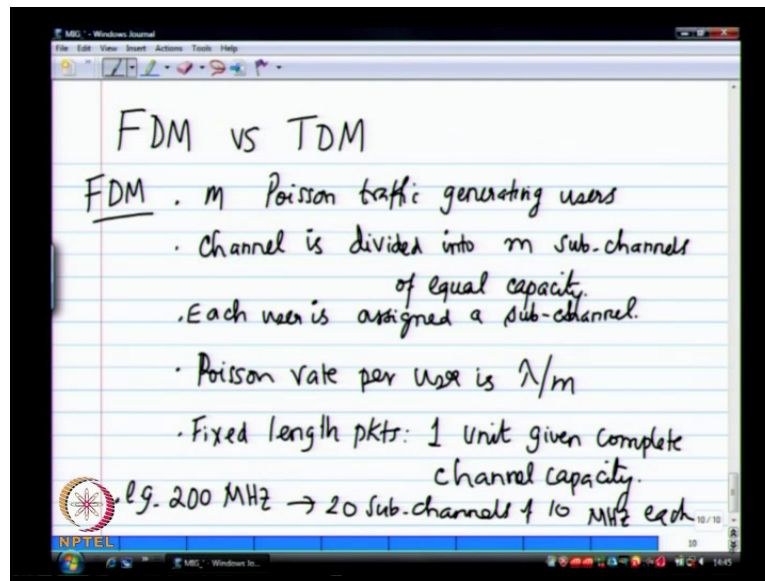 MIG_* - Windows Journal
File Edit View Insert Actions Tools Help
FDM vs TDM
FDM . m Poisson traffic generating users
. Channel is divided into m sub-channels
of equal capacity.
. Each user is assigned a sub-channel.
. Poisson rate per user is λ/m
. Fixed length pkts: 1 unit given complete
channel capacity.
. e.g. 200 MHz → 20 sub-channels of 10 MHz each
10 / 10
NPTEL
10
MIG_* - Windows Jo...
14:45